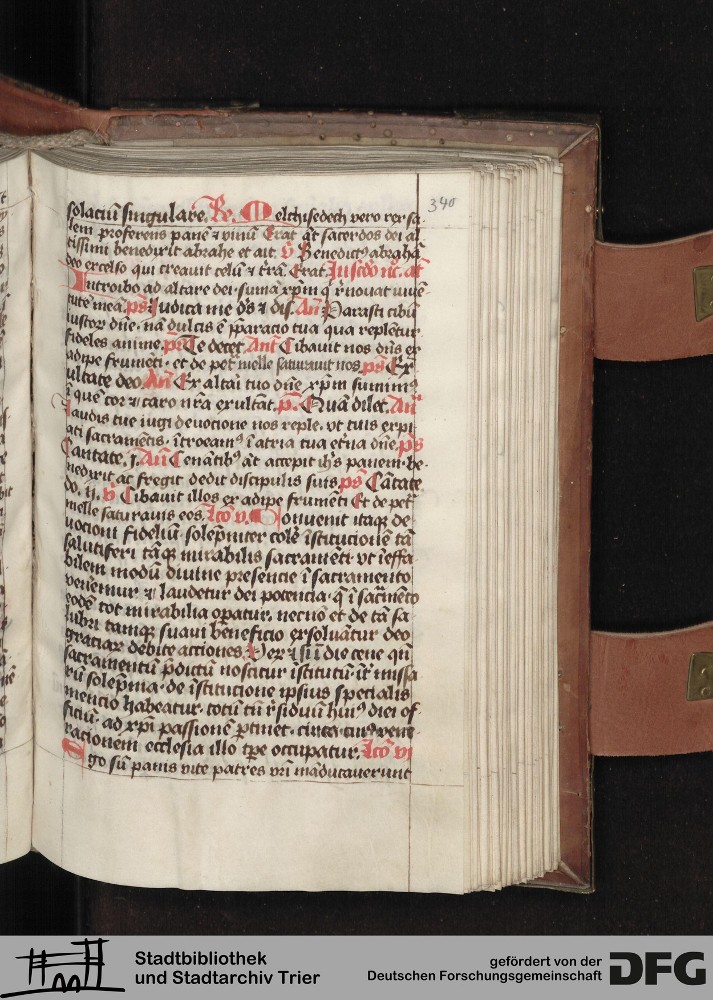 340
solaciū singulare. Re. Melchisedech vero rex sa-
lem proferens panē ⁊ vinū Erat at sacerdos dei al
tissimi benedixit abrahe et ait. v̄ Benedictꝰ abrahā
deo excelso qui creauit celū ⁊ trā. Erat. In scdo nc. añ
Introibo ad altare dei. sumā xpm q̇ renouat iuuē-
tutē meā. ps Iudica me ds ⁊ dis. Añ Parasti cibū
iustoꝝ dne. nā dulcis ē pparacio tua qua repletur
fideles anime. ps Te decet. Añt Cibauit nos dns ex
adipe frumēti. et de pet melle saturauit nos ps Ex
ultate deo. Añ Ex altari tuo dne xpm sumimꝰ
ī quē cor ⁊ caro nra exultāt. p. Quā dilec. Añ
Laudis tue iugi deuocione nos reple. vt tuis expi
ati sacramētis. ītroeamꝰ ī atria tua etna dne. ps
Cantate. j. Añ Cenātibꝰ at accepit ihs panem. be-
nedixit ac fregit dedit discipulis suis. ps Cātate
do. ij. v̄ Cibauit illos ex adipe frumēti Et de pet
melle saturauis eos. Lco v. Conuenit itaq̨ de
uocioni fidelium solepniter colē īstitucionē tā
salutiferi tāq̨ mirabilis sacramēti. vt ieffa-
bilem modū diuine presencie ī sacramento
venemur ⁊ laudetur dei potencia. q̄ ī sacmēto
eodē tot mirabilia opatur. necnō et de tā sa
lubri tamq̨ suaui beneficio exsoluātur deo
graciaꝝ debite acciones. Ver ⁊ si ī die cene qn̄
sacramentū pdictū noscitur īstitutū. īt missa
rū solepnia. de īstitucione ipsius specialis
mencio habeatur. totū tn̄ rsiduū huiꝰ diei of-
ficiū. ad xpi passionē ptinet. circa cuiꝰ vene-
racionem ecclesia illo tpe occupatur. Lco vj
Ego sū panis vite patres vri māducauerunt
Stadtbibliothek
und Stadtarchiv Trier
gefördert von der
Deutschen Forschungsgemeinschaft
DFG